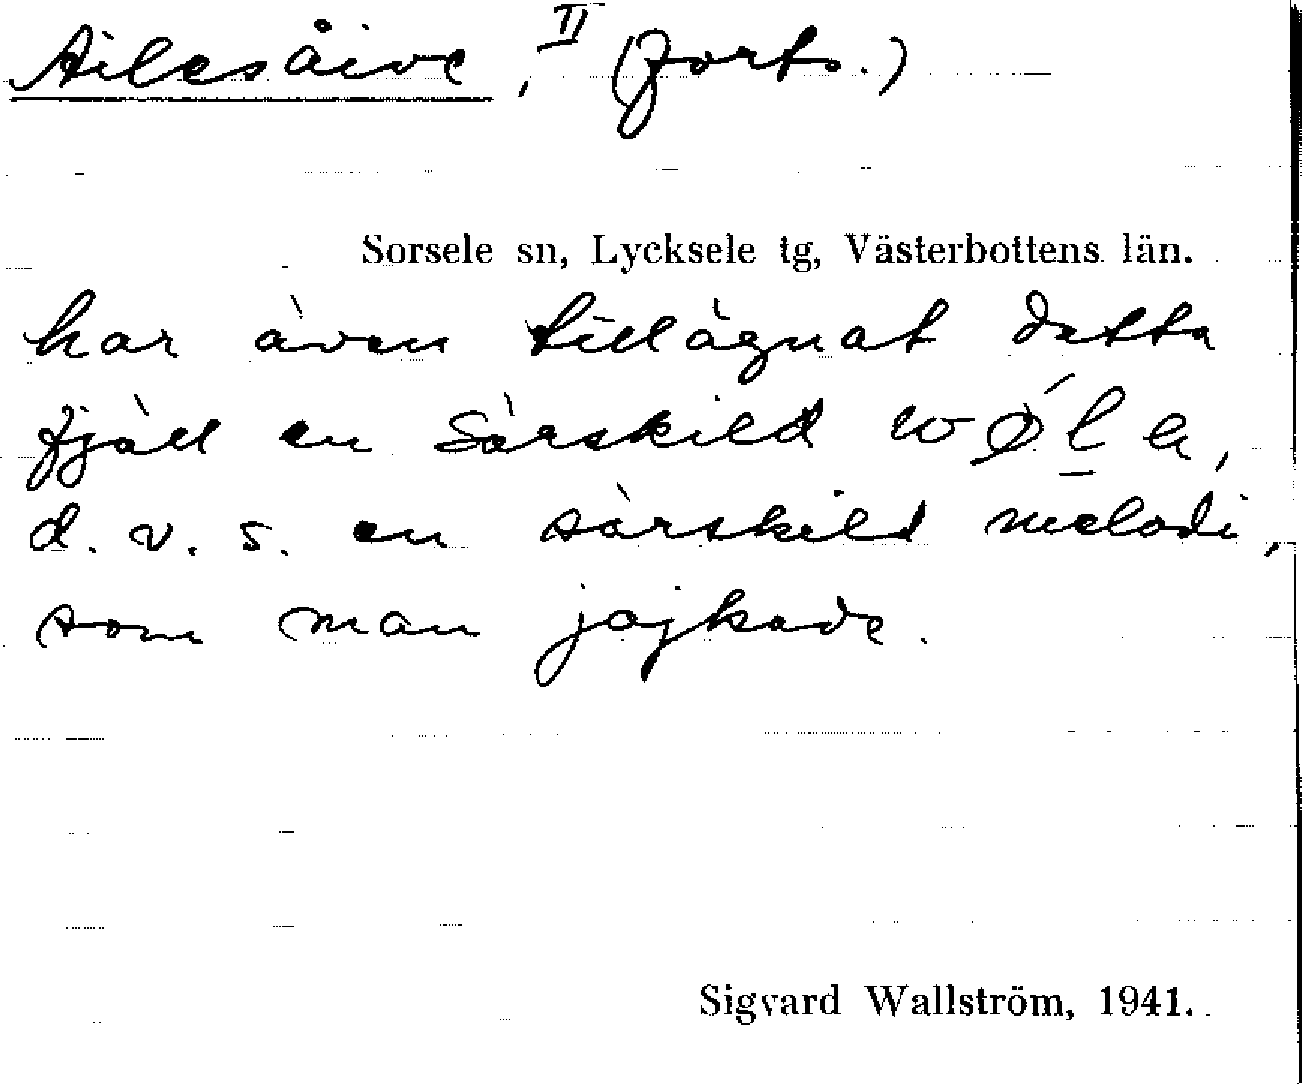 Ailesåive, II (forts.)
Sorsele sn, Lycksele tg, Västerbottens län.
har även tillägnat detta
fjäll en särskild wǿl̠a,
d. v. s. en särskild melodi,
som man jojkade.
Sigvard Wallström, 1941.